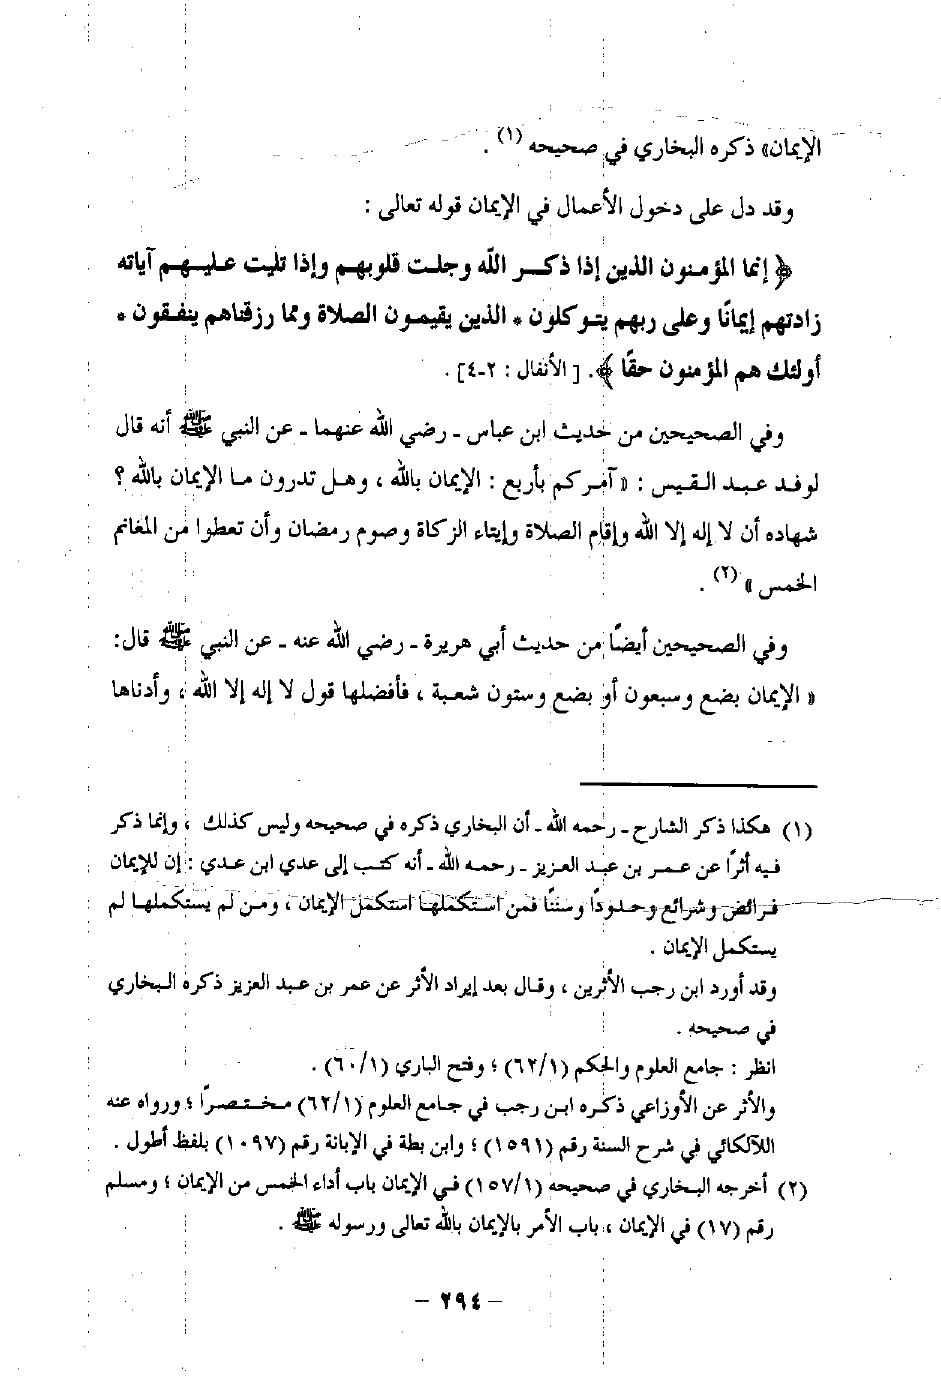 الإيمان» ذكره البخاري في صحيحه (١) .
وقد دل على دخول الأعمال في الإيمان قوله تعالى :
﴿ إنما المؤمنون الذين إذا ذكر الله وجلت قلوبهم وإذا تليت عليهم آياته
زادتهم إيمانًا وعلى ربهم يتوكلون * الذين يقيمون الصلاة ومما رزقناهم ينفقون *
أولئك هم المؤمنون حقًا ﴾. [ الأنفال : ٢-٤] .
وفي الصحيحين من حديث ابن عباس ـ رضي الله عنهما ـ عن النبي ﷺ أنه قال
لوفد عبد القيس : « آمركم بأربع : الإيمان بالله ، وهل تدرون ما الإيمان بالله ؟
شهاده أن لا إله إلا الله وإقام الصلاة وإيتاء الزكاة وصوم رمضان وأن تعطوا من المغانم
الخمس » (٢) .
وفي الصحيحين أيضًا من حديث أبي هريرة ـ رضي الله عنه ـ عن النبي ﷺ قال:
« الإيمان بضع وسبعون أو بضع وستون شعبة ، فأفضلها قول لا إله إلا الله ، وأدناها
(١) هكذا ذكر الشارح ـ رحمه الله ـ أن البخاري ذكره في صحيحه وليس كذلك ، وإنما ذكر
فيه أثرًا عن عمر بن عبد العزيز ـ رحمه الله ـ أنه كتب إلى عدي ابن عدي : إن للإيمان
فرائض وشرائع وحدودًا وسننًا فمن استكملها استكمل الإيمان ، ومن لم يستكملها لم
يستكمل الإيمان .
وقد أورد ابن رجب الأثرين ، وقال بعد إيراد الأثر عن عمر بن عبد العزيز ذكره البخاري
في صحيحه .
انظر : جامع العلوم والحكم (٦٢/١) ؛ وفتح الباري (٦٠/١) .
والأثر عن الأوزاعي ذكره ابن رجب في جامع العلوم (٦٢/١) مختصرًا ؛ ورواه عنه
اللآلكائي في شرح السنة رقم (١٥٩١) ؛ وابن بطة في الإبانة رقم (١٠٩٧) بلفظ أطول .
(٢) أخرجه البخاري في صحيحه (١٥٧/١) في الإيمان باب أداء الخمس من الإيمان ؛ ومسلم
رقم (١٧) في الإيمان ، باب الأمر بالإيمان بالله تعالى ورسوله ﷺ .
– ٢٩٤ –